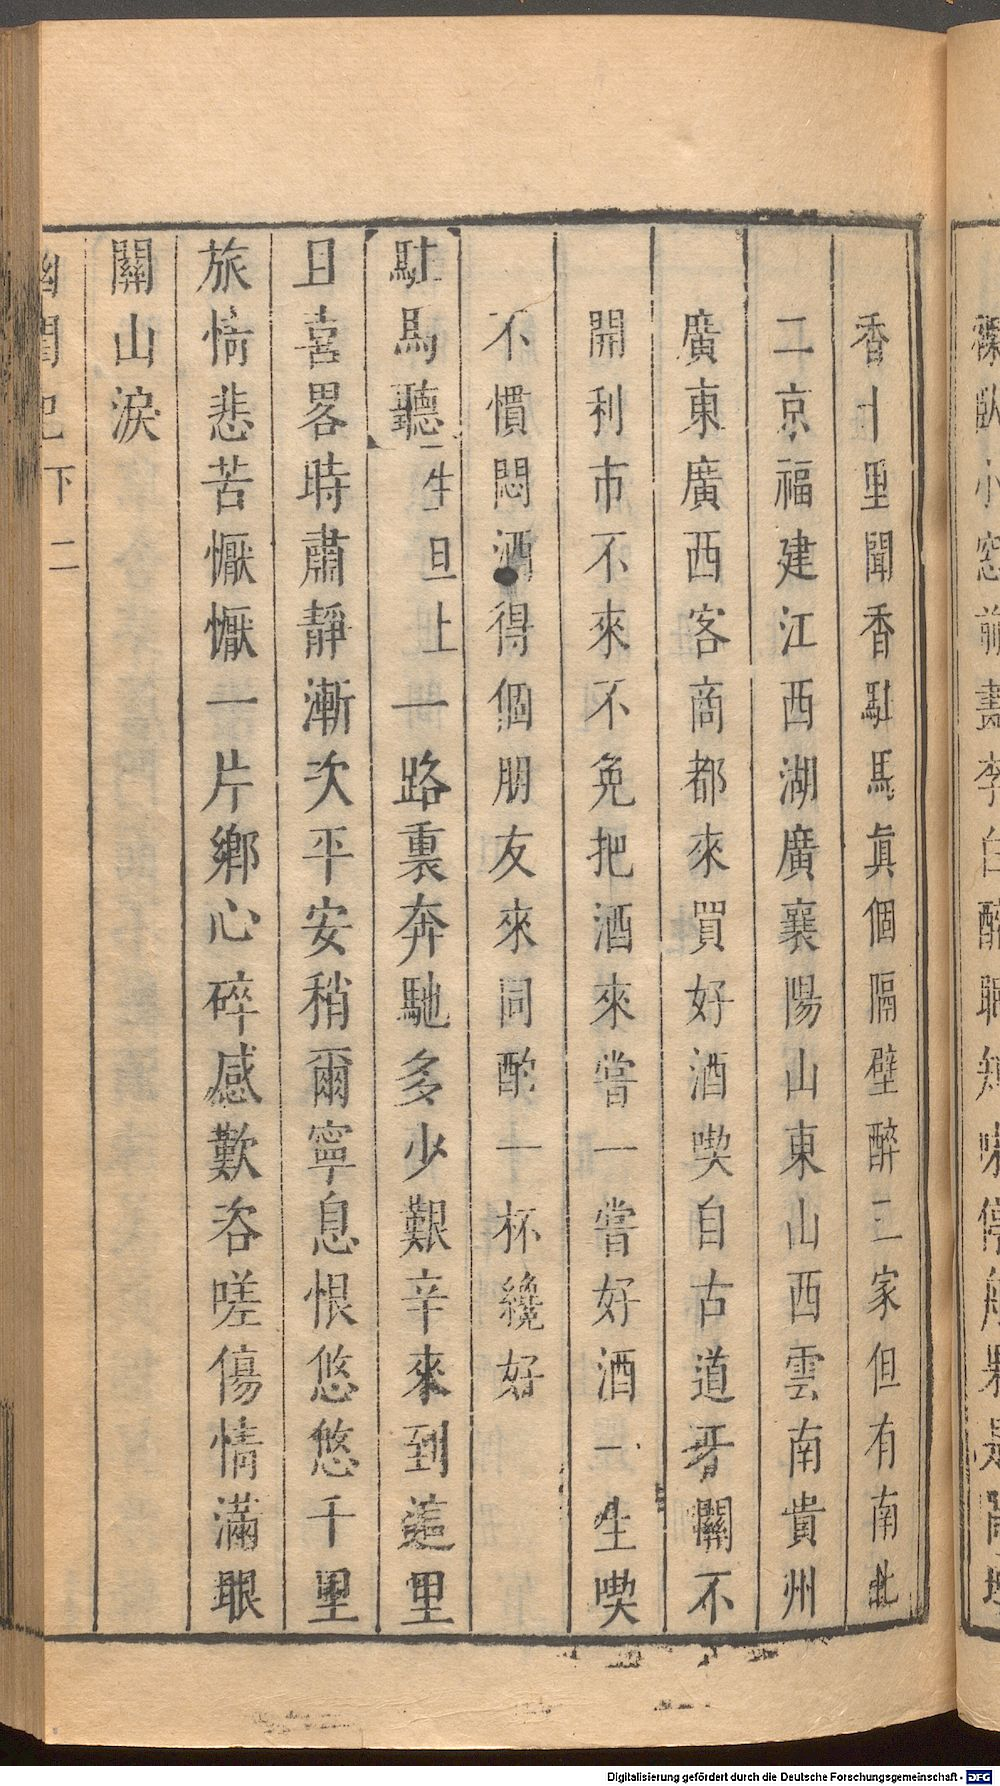 香十里聞香駐馬眞個隔壁醉三家但有南北
二京福建江西湖廣襄陽山東山西雲南貴州
廣東廣西客商都來買好酒喫自古道牙關不
開利市不來不免把酒來嘗一嘗好酒一生喫
不慣悶酒得個朋友來同酌一杯纔好
駐馬聽生旦上一路裏奔馳多少艱辛來到這里
且喜畧時肅靜漸次平安稍爾寧息恨悠悠千里
旅情悲苦懨懨一片鄉心碎感歎咨嗟傷情滿眼
關山淚
幽閨記下 二
Digitalisierung gefördert durch die Deutsche Forschungsgemeinschaft - DFG